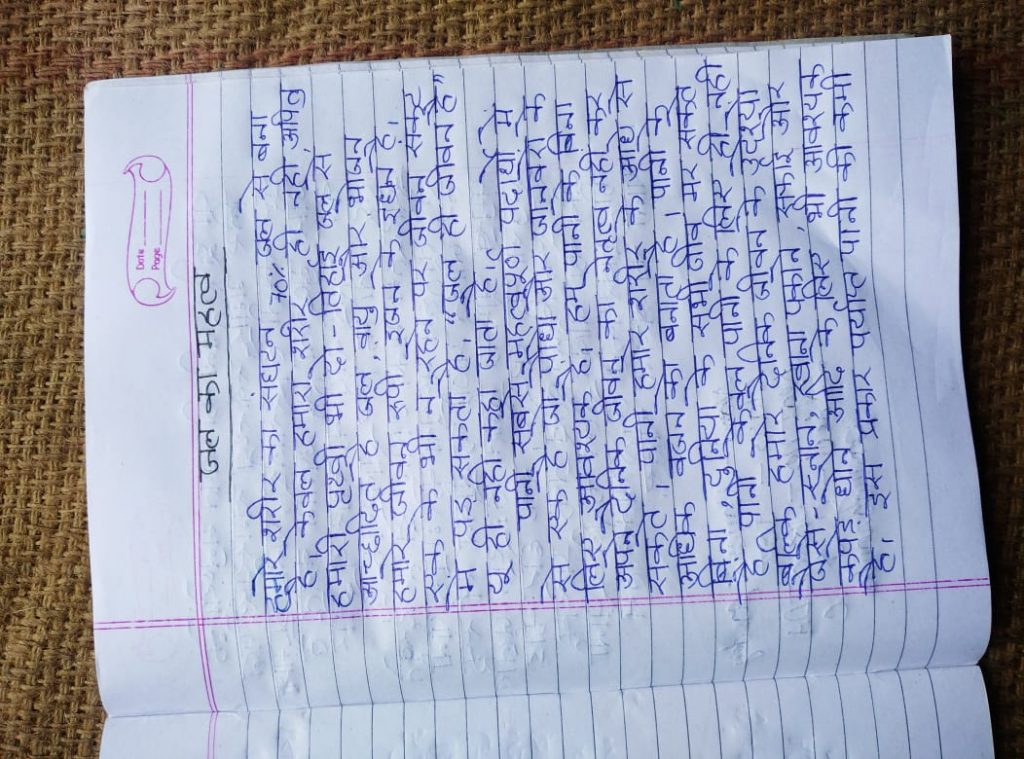 Date
Page
जल का महत्व
हमारे शरीर का संघटन 70% जल से बना
है। केवल हमारा शरीर ही नहीं, अपितु
हमारी पृथ्वी भी दो-तिहाई जल से
आच्छादित है जल, वायु और भोजन
हमारे जीवन रूपी इंजन के इंधन है।
एक के भी न रहने पर जीवन संकट
में पड़ सकता है, "जल ही जीवन है"
यू ही नहीं कहा जाता है।
पानी सबसे महत्वपूर्ण पदार्थों में
से एक है जो पौधों और जानवरों के
लिए आवश्यक है। हम पानी के बिना
अपने दैनिक जीवन का नेतृत्व नहीं कर
सकते। पानी हमारे शरीर के आधे से
अधिक वजन को बनाता है। पानी के
बिना, दुनिया के सभी जीव मर सकते
है। पानी केवल पीने के लिए ही नहीं
बल्कि हमारे दैनिक जीवन के उद्देश्यो
जैसे- स्नान, खाना पकाने, सफाई और
कपड़े धोने आदि के लिए भी आवश्यक
है। इस प्रकार पर्याप्त पानी की कमी